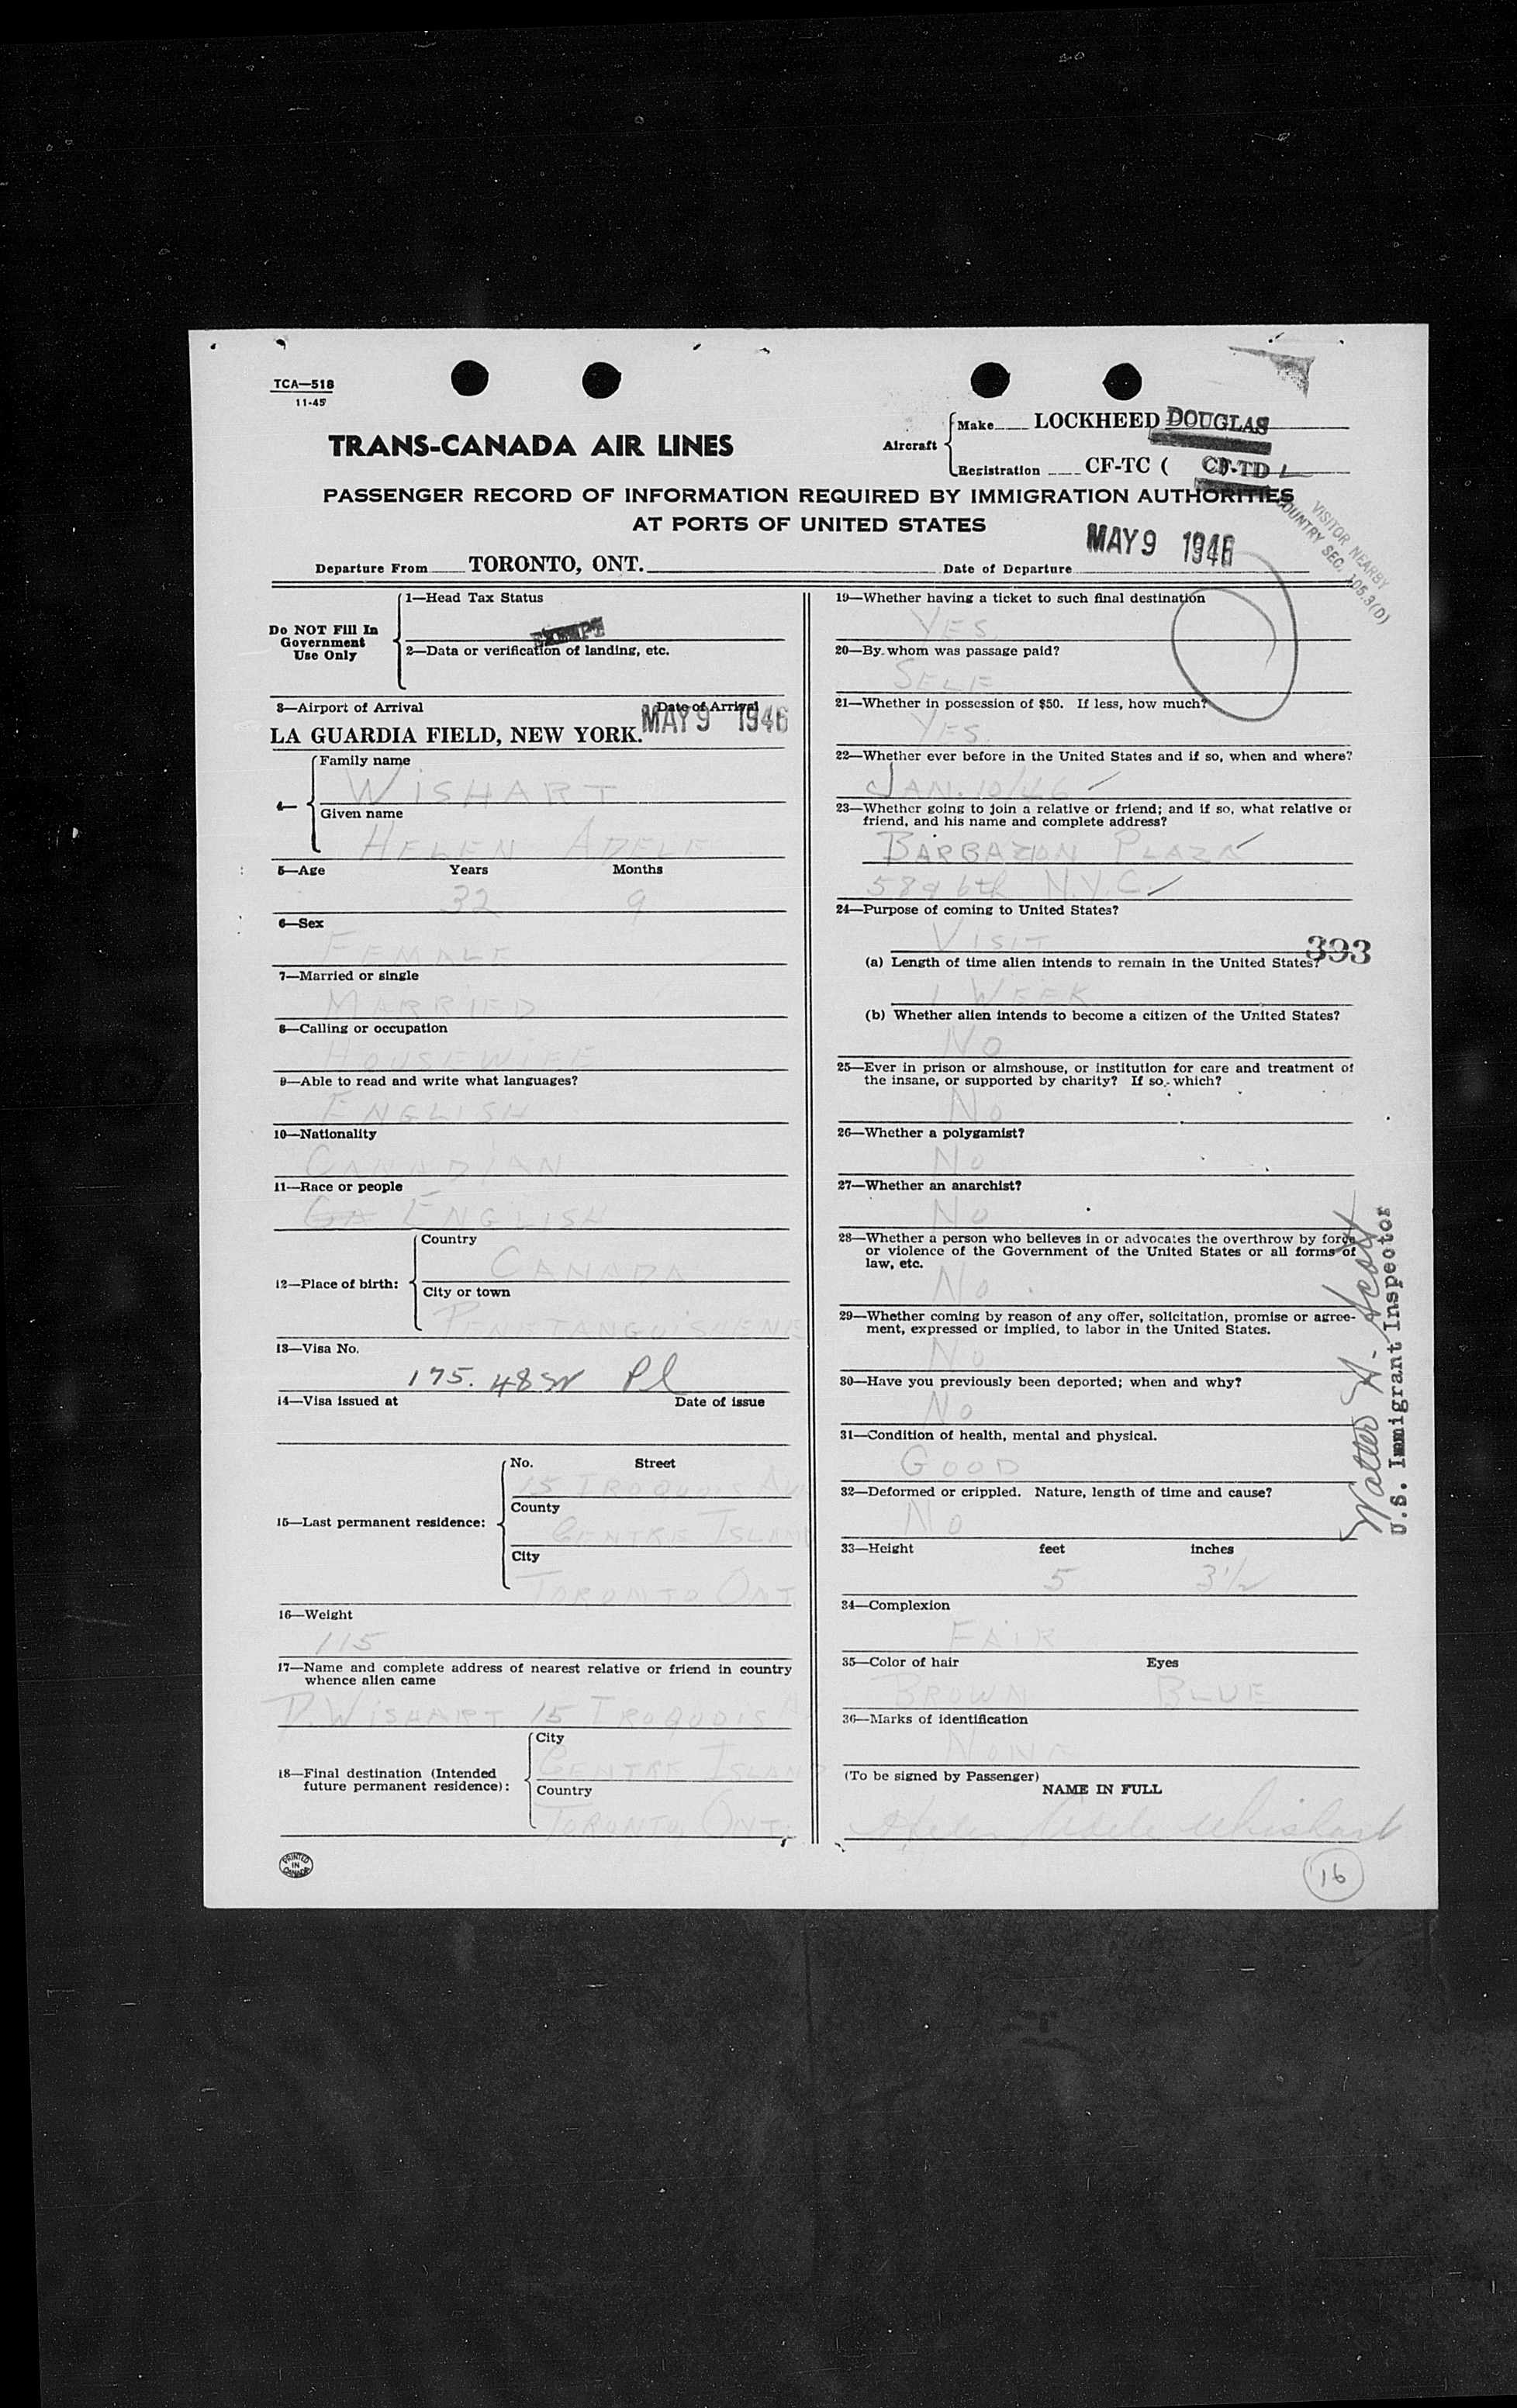 TCA—518
11-45
TRANS-CANADA AIR LINES
Aircraft
Make LOCKHEED DOUGLAS
Registration CF-TC ( CF-TD L
PASSENGER RECORD OF INFORMATION REQUIRED BY IMMIGRATION AUTHORITIES
AT PORTS OF UNITED STATES
VISITOR NEARBY
COUNTRY SEC. 105.3(D)
Departure From TORONTO, ONT. Date of Departure MAY 9 1946
Do NOT Fill In
Government
Use Only
1—Head Tax Status
EXEMPT
2—Data or verification of landing, etc.
3—Airport of Arrival Date of Arrival
LA GUARDIA FIELD, NEW YORK. MAY 9 1946
4—
Family name
WISHART
Given name
HELEN ADELE
5—Age Years Months
32 9
6—Sex
FEMALE
7—Married or single
MARRIED
8—Calling or occupation
HOUSEWIFE
9—Able to read and write what languages?
ENGLISH
10—Nationality
CANADIAN
11—Race or people
CA ENGLISH
12—Place of birth:
Country
CANADA
City or town
PENETANGUISHENE
13—Visa No.
175. 48
14—Visa issued at Date of issue
15—Last permanent residence:
No. Street
15 IROQUOIS AVE
County
CENTRE ISLAND
City
TORONTO ONT
16—Weight
115
17—Name and complete address of nearest relative or friend in country
whence alien came
D. WISHART 15 IROQUOIS A
18—Final destination (Intended
future permanent residence):
City
CENTRE ISLAND
Country
TORONTO, ONT.
PRINTED
IN
CANADA
19—Whether having a ticket to such final destination
YES
20—By whom was passage paid?
SELF
21—Whether in possession of $50. If less, how much?
YES.
22—Whether ever before in the United States and if so, when and where?
JAN. 10/46
23—Whether going to join a relative or friend; and if so, what relative or
friend, and his name and complete address?
BARBAZION PLAZA
589 6th N.Y.C.
24—Purpose of coming to United States?
VISIT
393
(a) Length of time alien intends to remain in the United States?
1 WEEK
(b) Whether alien intends to become a citizen of the United States?
NO
25—Ever in prison or almshouse, or institution for care and treatment of
the insane, or supported by charity? If so, which?
NO
26—Whether a polygamist?
NO
27—Whether an anarchist?
NO
28—Whether a person who believes in or advocates the overthrow by force
or violence of the Government of the United States or all forms of
law, etc.
NO
29—Whether coming by reason of any offer, solicitation, promise or agree-
ment, expressed or implied, to labor in the United States.
NO
30—Have you previously been deported; when and why?
NO
31—Condition of health, mental and physical.
GOOD
32—Deformed or crippled. Nature, length of time and cause?
NO
33—Height feet inches
5 3 1/2
34—Complexion
FAIR
35—Color of hair Eyes
BROWN BLUE
36—Marks of identification
NONE
(To be signed by Passenger)
NAME IN FULL
Helen Adele Whishart
16
Walter A. Scott
U.S. Immigrant Inspector